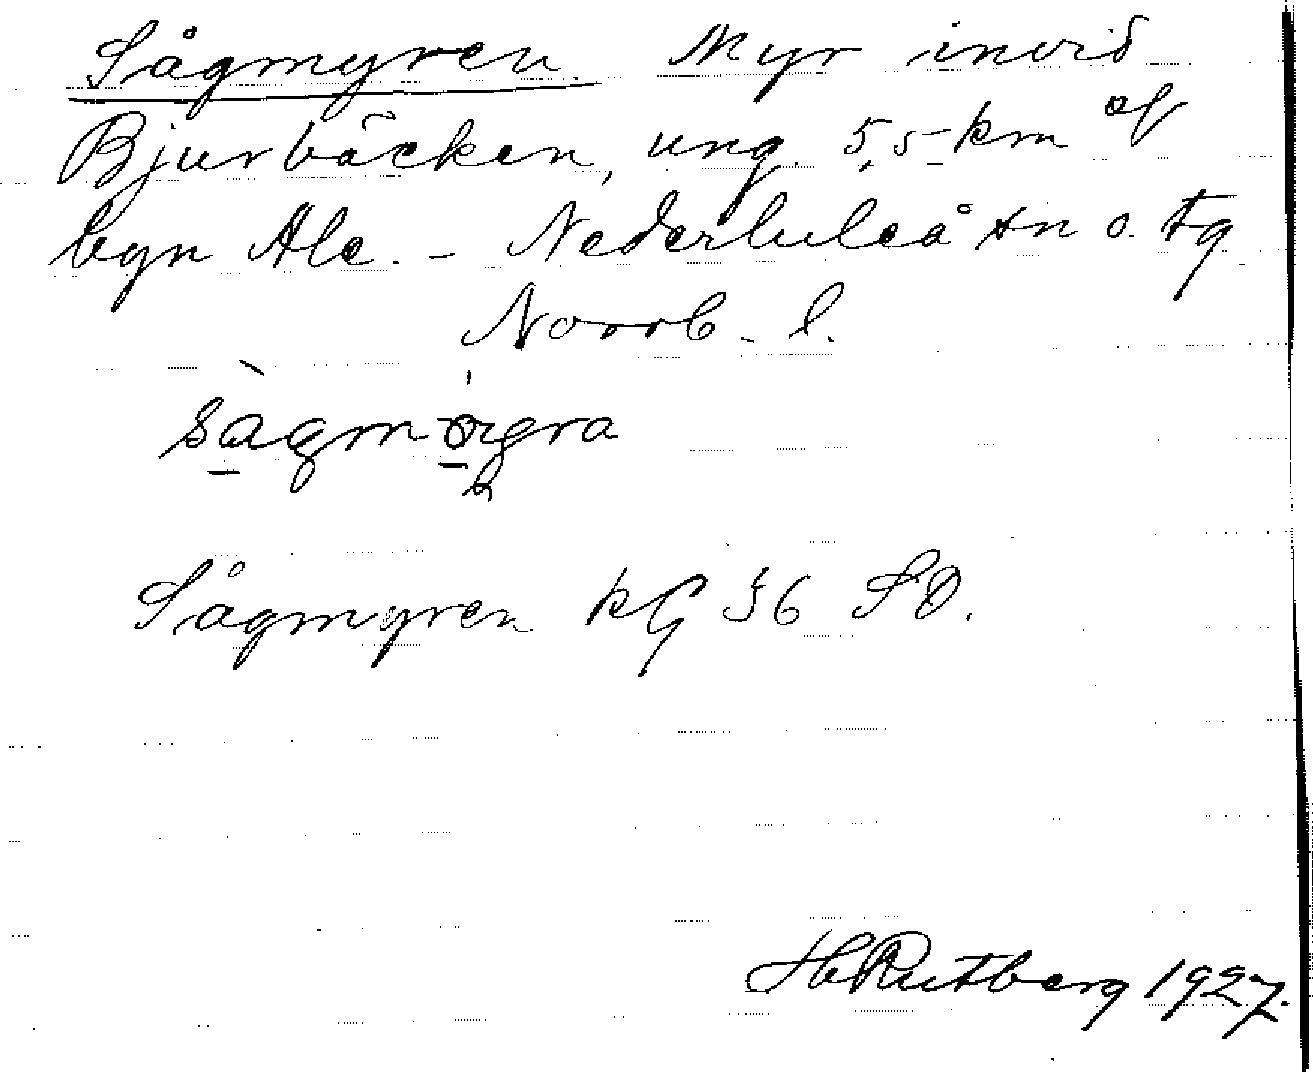 Sågmyren. Myr invid
Bjurbäcken, ung. 5,5 km af
byn Ale. - Nederluleå tn o. tg
Norrb. l.
Sågmyren kG 36 SO.
H Rutberg 1927.